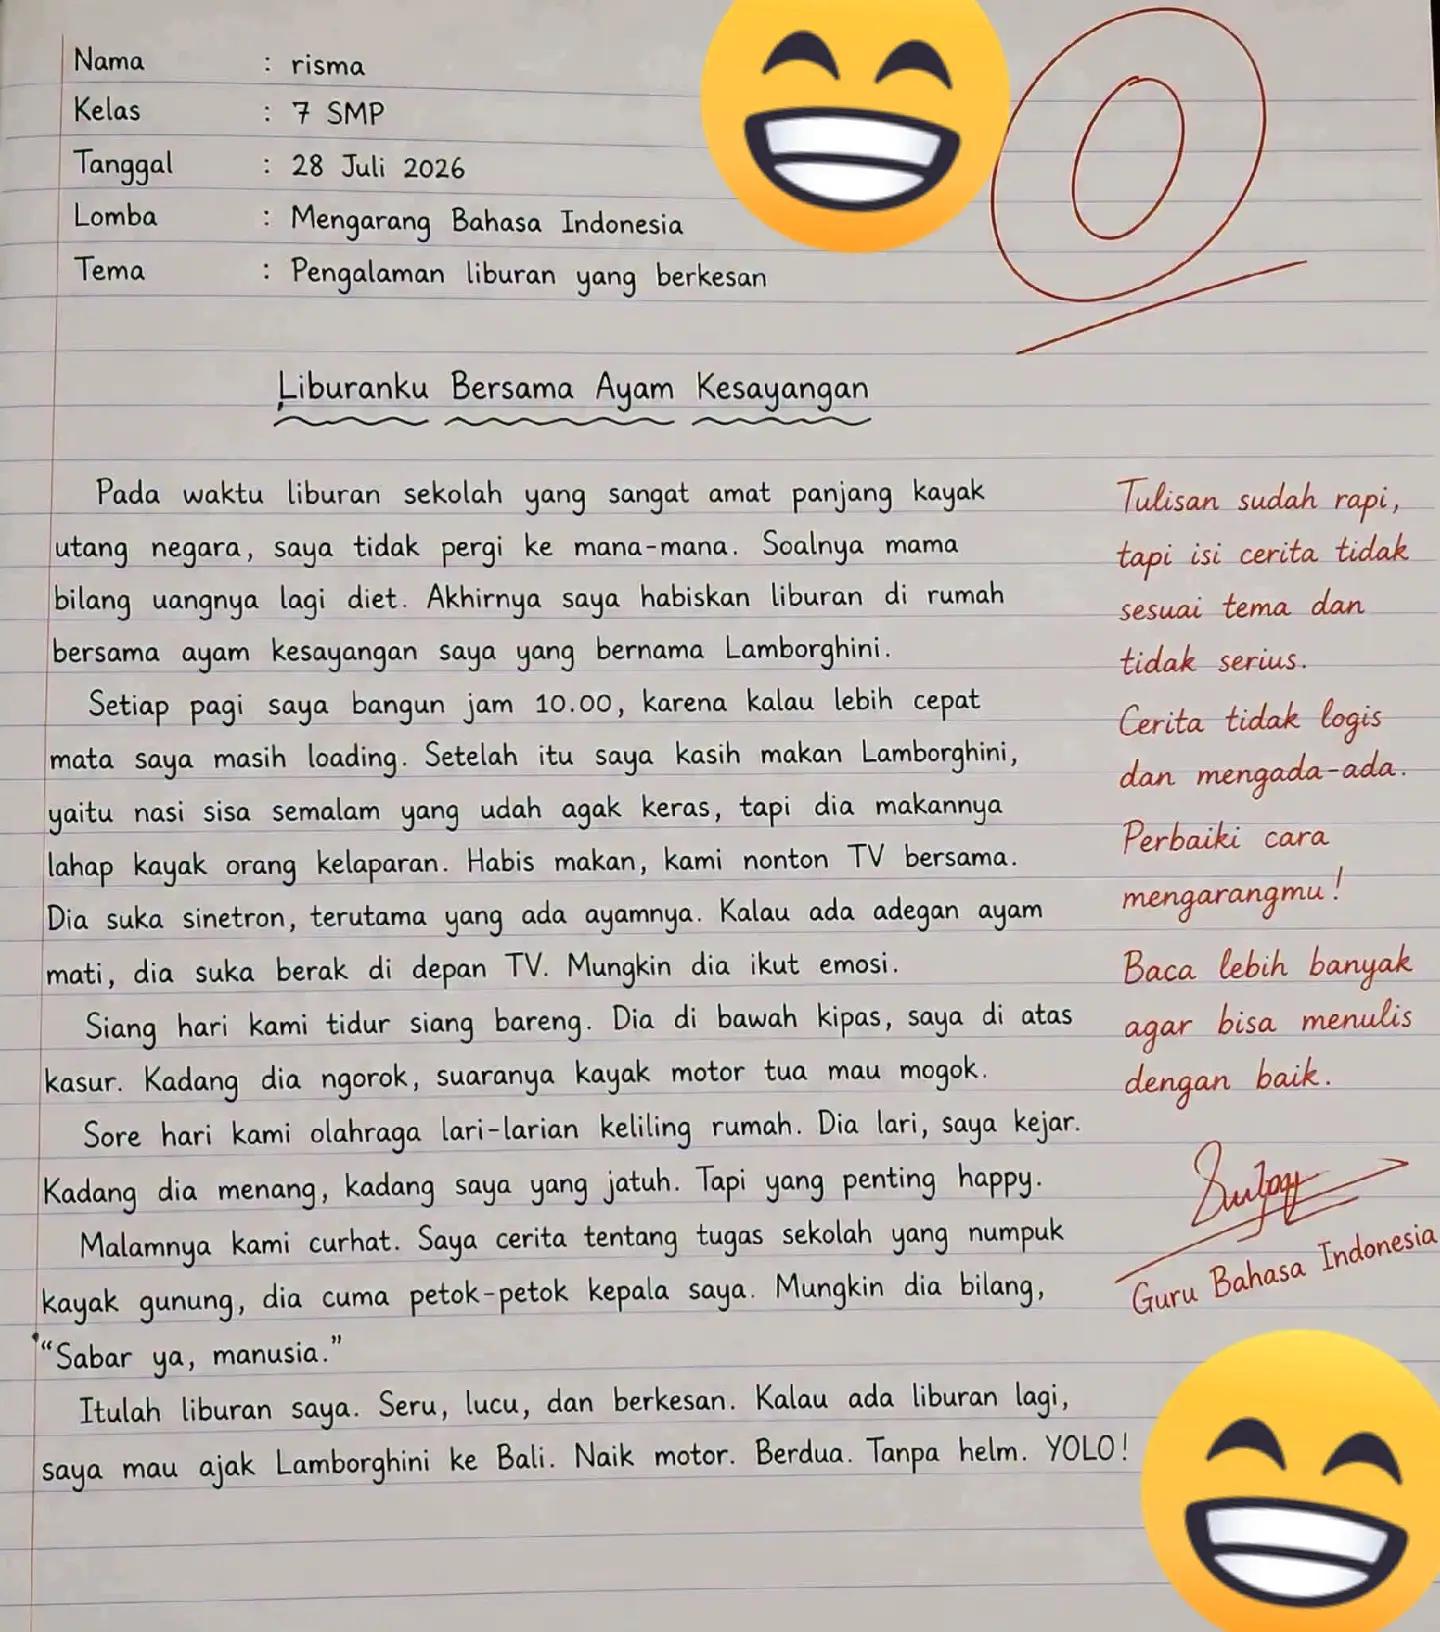 Nama : risma
Kelas : 7 SMP
Tanggal : 28 Juli 2026
Lomba : Mengarang Bahasa Indonesia
Tema : Pengalaman liburan yang berkesan
0
Liburanku Bersama Ayam Kesayangan
Pada waktu liburan sekolah yang sangat amat panjang kayak
utang negara, saya tidak pergi ke mana-mana. Soalnya mama
bilang uangnya lagi diet. Akhirnya saya habiskan liburan di rumah
bersama ayam kesayangan saya yang bernama Lamborghini.
Setiap pagi saya bangun jam 10.00, karena kalau lebih cepat
mata saya masih loading. Setelah itu saya kasih makan Lamborghini,
yaitu nasi sisa semalam yang udah agak keras, tapi dia makannya
lahap kayak orang kelaparan. Habis makan, kami nonton TV bersama.
Dia suka sinetron, terutama yang ada ayamnya. Kalau ada adegan ayam
mati, dia suka berak di depan TV. Mungkin dia ikut emosi.
Siang hari kami tidur siang bareng. Dia di bawah kipas, saya di atas
kasur. Kadang dia ngorok, suaranya kayak motor tua mau mogok.
Sore hari kami olahraga lari-larian keliling rumah. Dia lari, saya kejar.
Kadang dia menang, kadang saya yang jatuh. Tapi yang penting happy.
Malamnya kami curhat. Saya cerita tentang tugas sekolah yang numpuk
kayak gunung, dia cuma petok-petok kepala saya. Mungkin dia bilang,
"Sabar ya, manusia."
Itulah liburan saya. Seru, lucu, dan berkesan. Kalau ada liburan lagi,
saya mau ajak Lamborghini ke Bali. Naik motor. Berdua. Tanpa helm. YOLO!
Tulisan sudah rapi,
tapi isi cerita tidak
sesuai tema dan
tidak serius.
Cerita tidak logis
dan mengada-ada.
Perbaiki cara
mengarangmu!
Baca lebih banyak
agar bisa menulis
dengan baik.
Guru Bahasa Indonesia